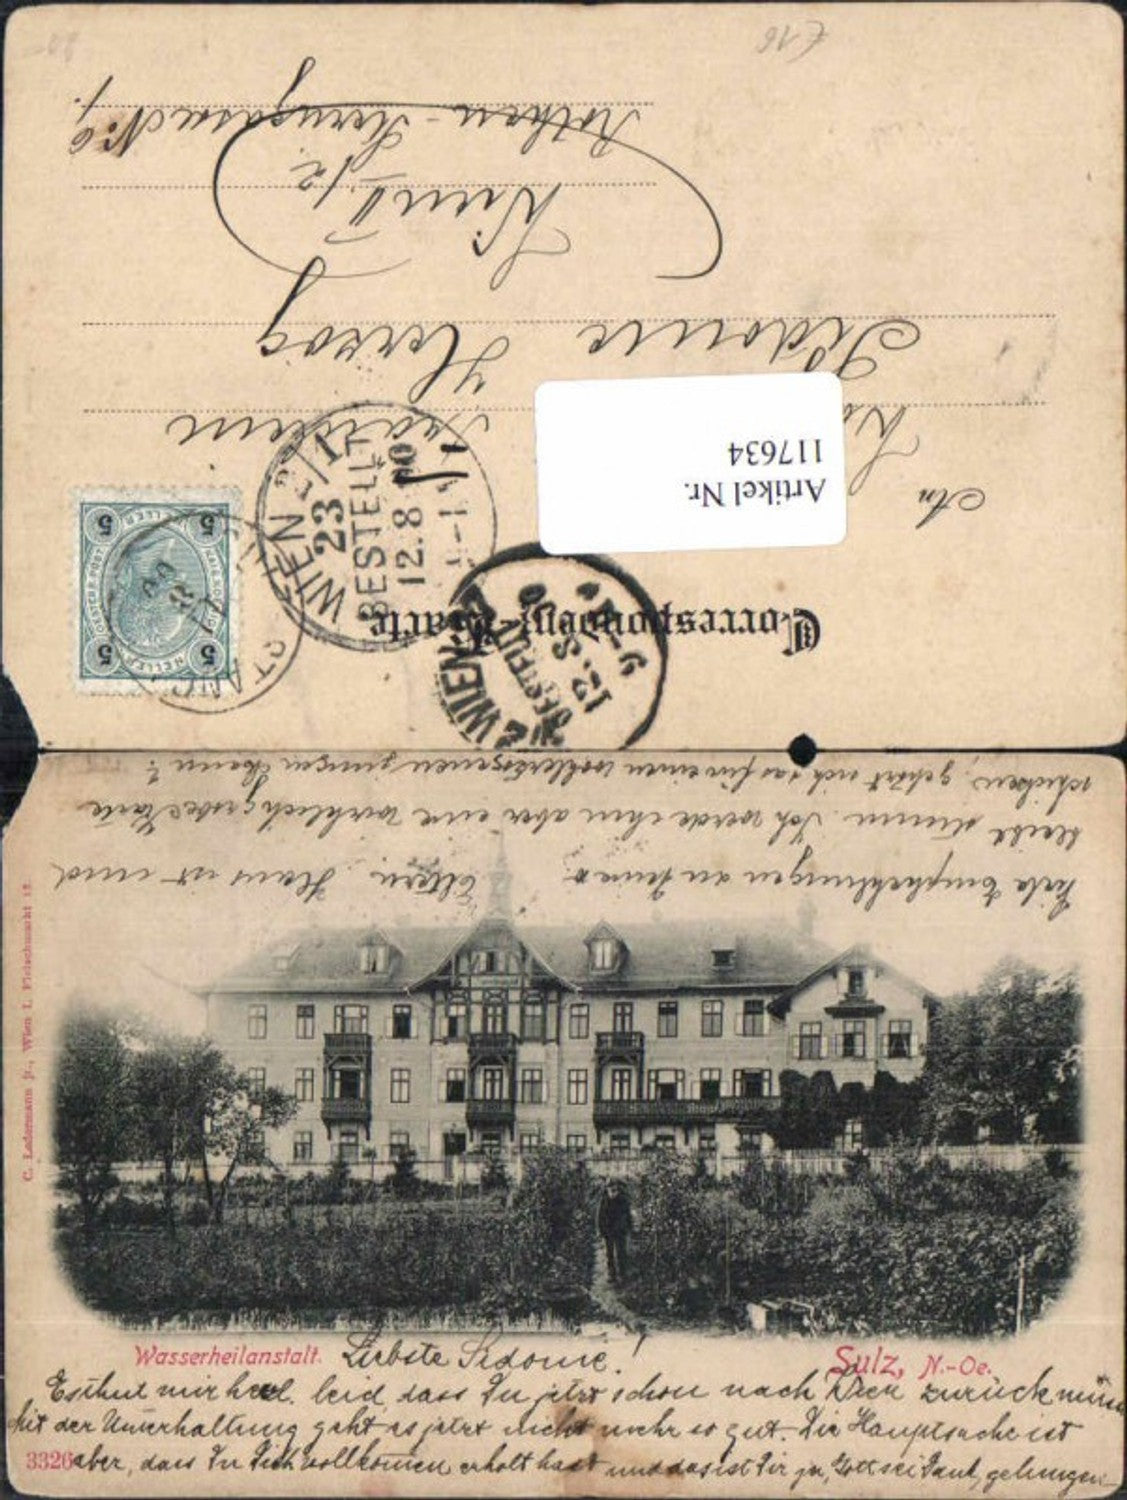 Correspondenz-Karte
An
Artikel Nr.
117634
Sidonie Herzog
Wien II/2
Rothen-Sterngasse No 6
WIEN
23
BESTELLT
12.8.00
WIEN
BESTELLT
12.8.00
5 5
5 5
Viele Empfehlungen an Deine Eltern. Hans ist und
bleibt stumm. Ich werde ihm aber eine wirklich große Karte
schicken, gehört sich das für einen wohlerzogenen jungen Mann?
C. Ledermann jr., Wien I. Fleischmarkt 12.
Wasserheilanstalt.
Sulz, N.-Oe.
Liebste Sidonie!
Es thut mir leid, dass Du jetzt schon nach Wien zurück
Mit der Unterhaltung geht es jetzt nicht mehr so gut. Die Hauptsache ist
aber, dass Du Dich vollkommen erholt hast und das ist Dir ja, Gott sei Dank, gelungen
3326